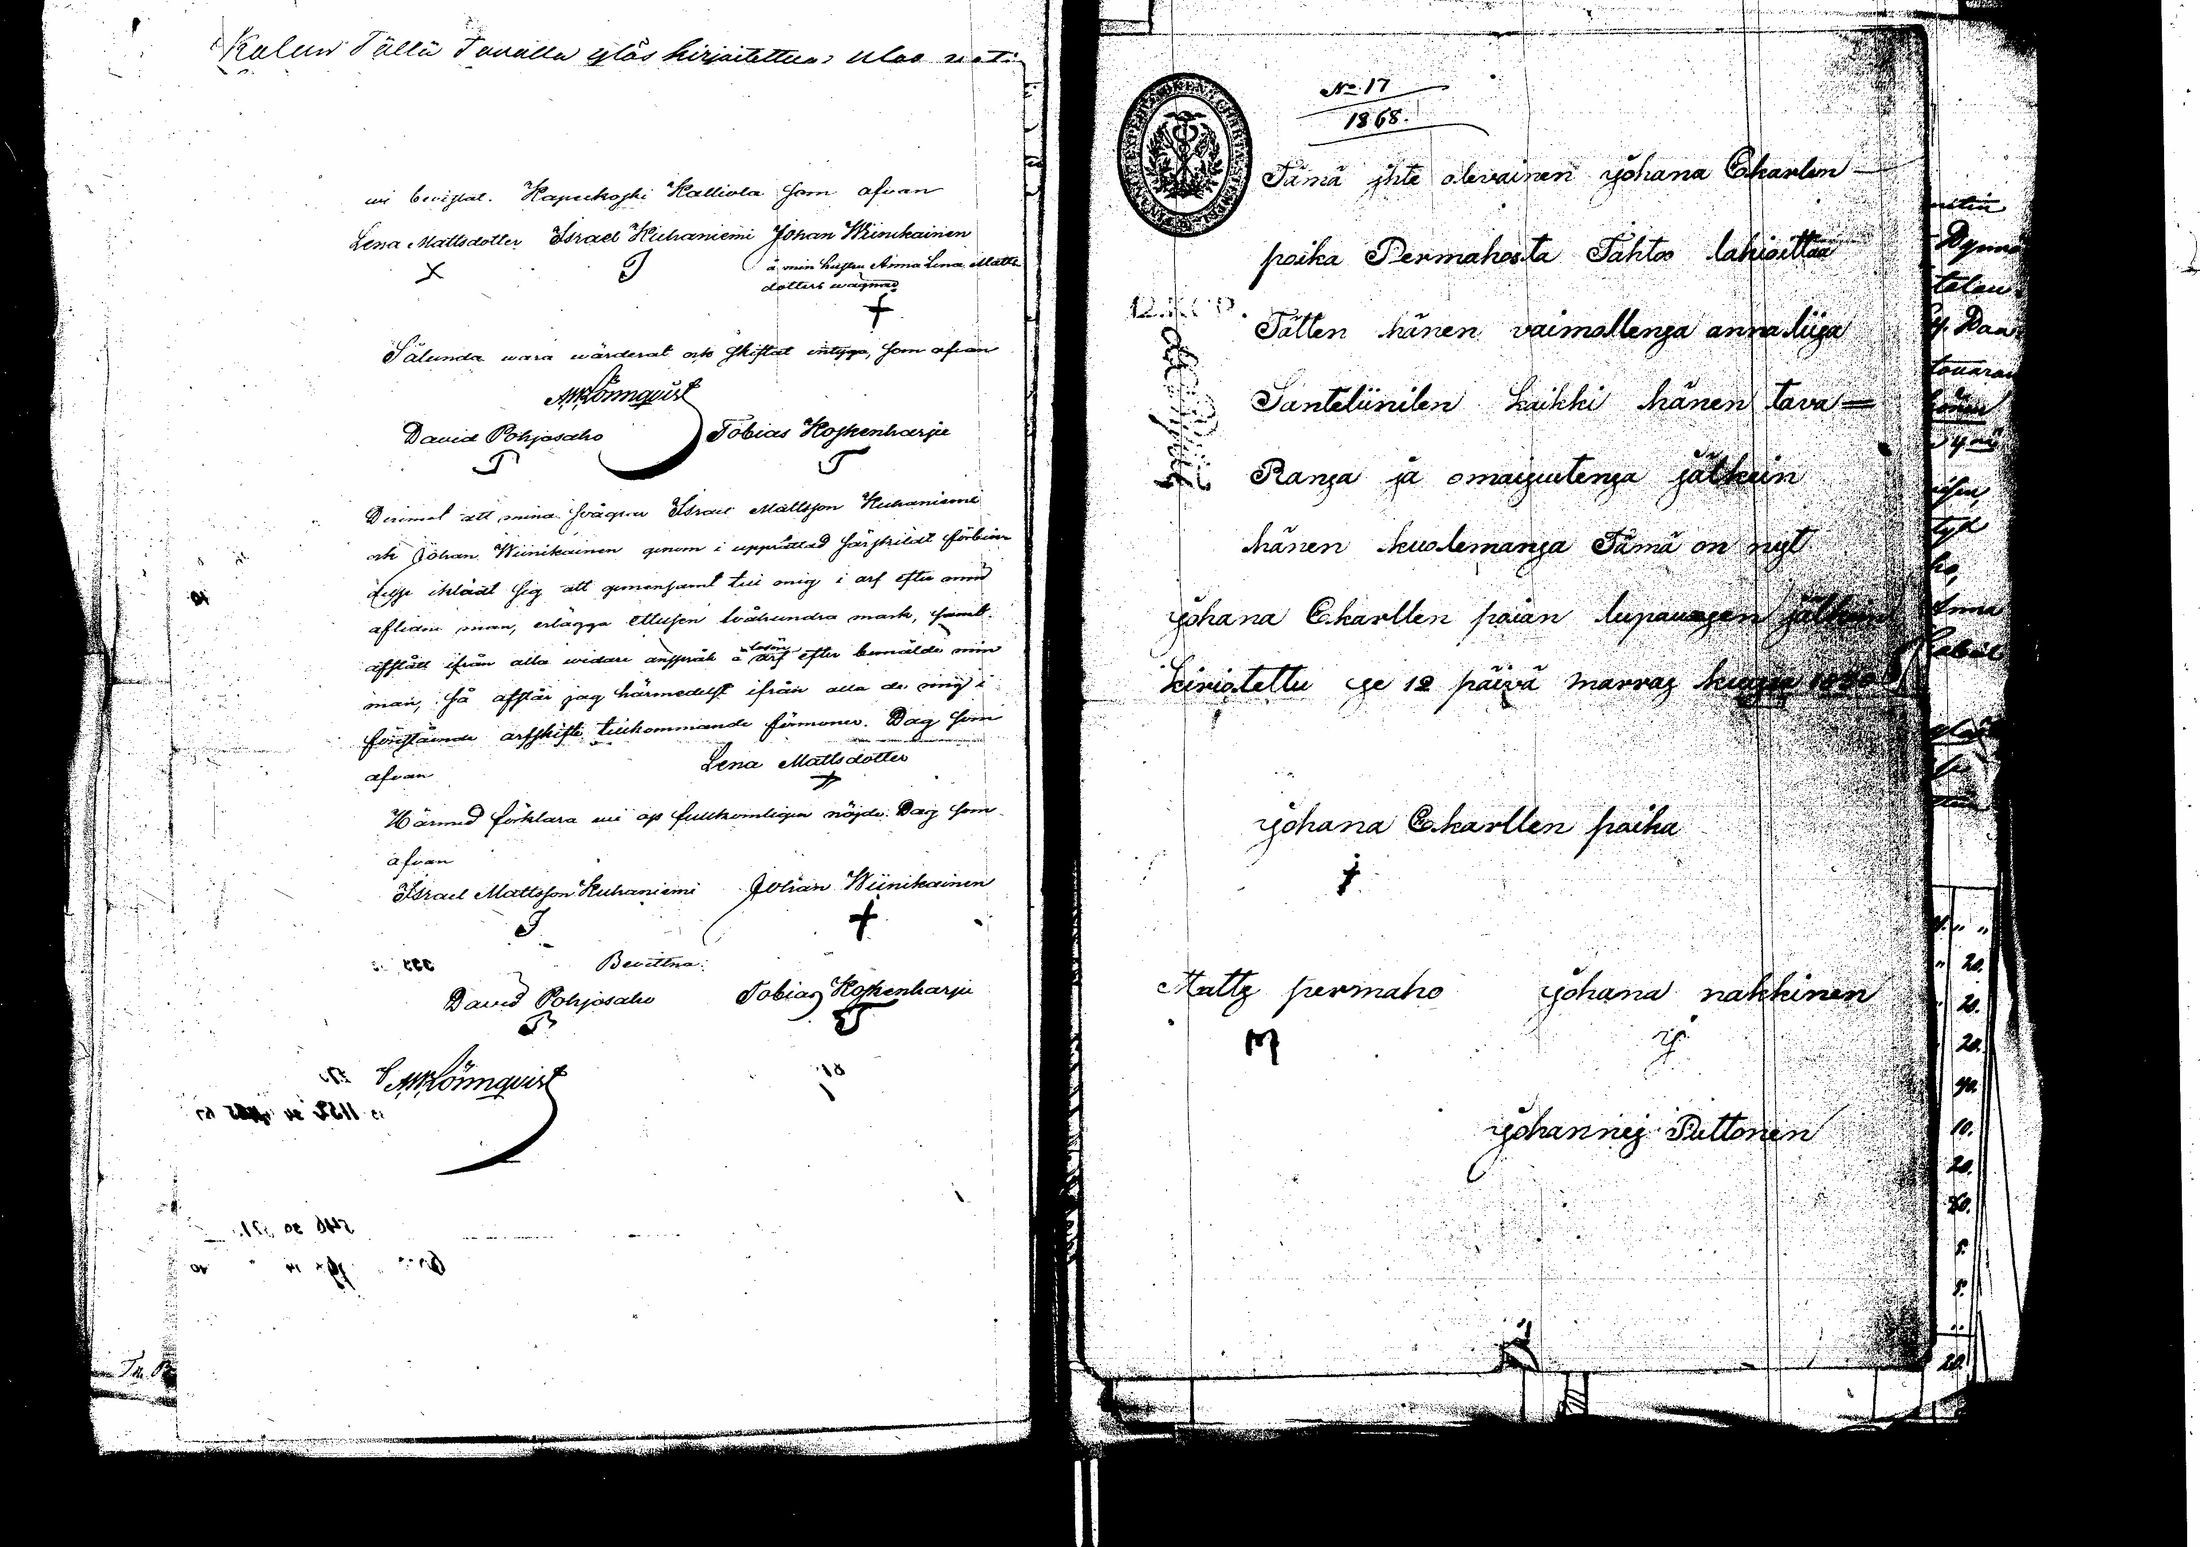 Kalun Tällä Tavalla ylös kirjoitettua;
wi bevistat. Kapeekoski Kalliola som ofvan
Lena Mattsdotter Israel Kuhaniemi Johan Wiinikainen
X I å min hustru Anna Lena Matts
dotters wägnar
+
Sålunda wara wärderat och skiftat intyga, som ofvan
Lönnqvist
David Pohjosaho Tobias Koskenharju
P T
Derimot att mina svågrar Israel Mattsson Kuhaniemi
och Johan Wiinikainen genom i upprättad särskildt förbin
delse iklädt sig att gemensamt till mig i arf efter min
aflidne man, erlägga ettusen tvåhundra mark, samt
afstått ifrån alla widare anspråk å arf efter bemälde min
man, så afstår jag härmedelst ifrån alla de mig i
föregående arfskifte tillkommande förmoner. Dag som
ofvan Lena Mattsdotter
+
Härmed förklara wi oss fullkomligen nöjde. Dag som
ofvan
Israel Mattsson Kuhaniemi Johan Wiinikainen
I +
Bevittna:
David Pohjosaho Tobias Koskenharju
P T
Lönnqvist
No 17
1868.
Tämä ihte olevainen Johana Ekarlen
poika Permahosta Tahtoo lahioittaa
Tätten hänen vaimollensa anna liisa
Santeliinilen kaikki hänen tava=
Ransa ja omaisutensa jälkein
hänen kuolemansa Tämä on nyt
Johana Ekarllen poian lupauxen jälkein
kiriotettu se 12 päivä marras kuussa
Johana Ekarllen poika
+
Matts permaho Johana nakkinen
M J
Johannes Puttonen